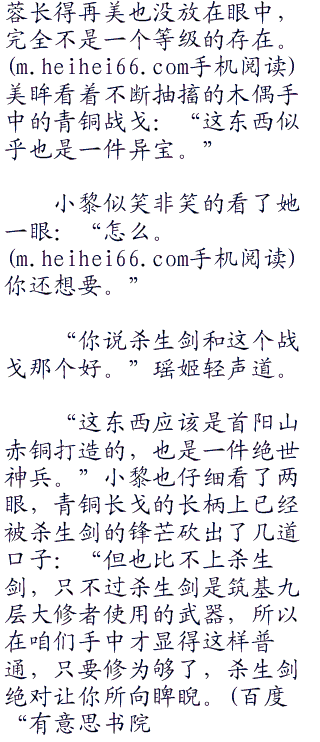 蓉长得再美也没放在眼中，
完全不是一个等级的存在。
(m.heihei66.com手机阅读)
美眸看着不断抽搐的木偶手
中的青铜战戈：“这东西似
乎也是一件异宝。”
小黎似笑非笑的看了她
一眼：“怎么。
(m.heihei66.com手机阅读)
你还想要。”
“你说杀生剑和这个战
戈那个好。”瑶姬轻声道。
“这东西应该是首阳山
赤铜打造的，也是一件绝世
神兵。”小黎也仔细看了两
眼，青铜长戈的长柄上已经
被杀生剑的锋芒砍出了几道
口子：“但也比不上杀生
剑，只不过杀生剑是筑基九
层大修者使用的武器，所以
在咱们手中才显得这样普
通，只要修为够了，杀生剑
绝对让你所向睥睨。(百度
“有意思书院